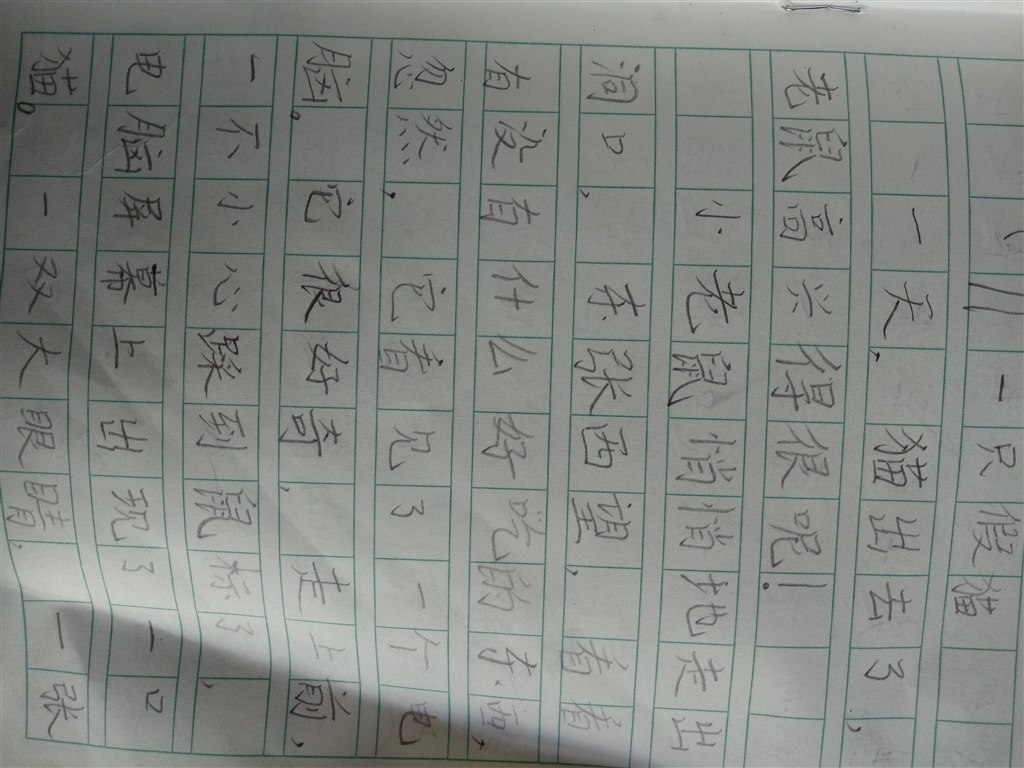 一只假猫
一天,猫出去了,
老鼠高兴得很呢!
小老鼠悄悄地走出
洞口,东张西望,看看
有没有什么好吃的东西,
忽然,它看见了一个电
脑。它很好奇,走上前,
一不小心踩到鼠标了,
电脑屏幕上出现了一口
猫。一双大眼睛,一张